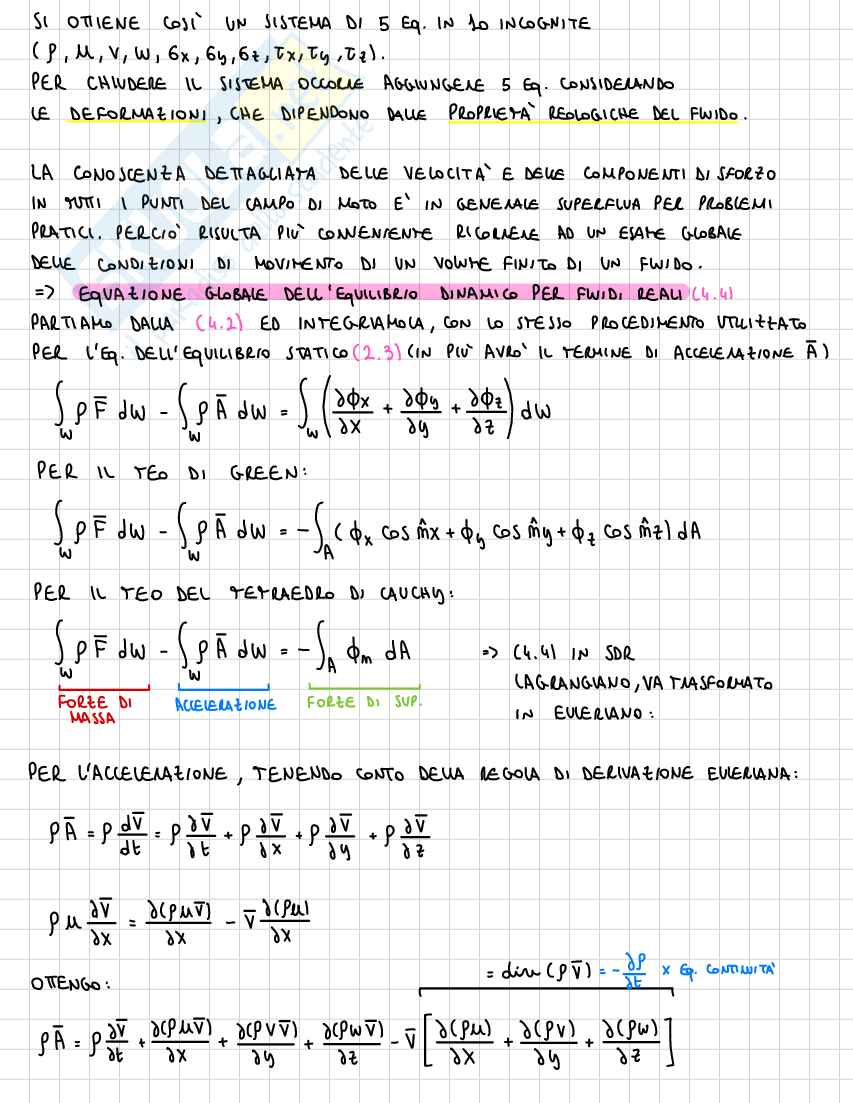 SI OTTIENE COSÌ UN SISTEMA DI 5 EQ. IN 10 INCOGNITE
(ρ, u, v, w, σx, σy, σz, τx, τy, τz).
PER CHIUDERE IL SISTEMA OCCORRE AGGIUNGERE 5 EQ. CONSIDERANDO
LE DEFORMAZIONI, CHE DIPENDONO DALLE PROPRIETÀ REOLOGICHE DEL FLUIDO.
LA CONOSCENZA DETTAGLIATA DELLE VELOCITÀ E DELLE COMPONENTI DI SFORZO
IN TUTTI I PUNTI DEL CAMPO DI MOTO È IN GENERALE SUPERFLUA PER PROBLEMI
PRATICI. PERCIÒ RISULTA PIÙ CONVENIENTE RICORRERE AD UN ESAME GLOBALE
DELLE CONDIZIONI DI MOVIMENTO DI UN VOLUME FINITO DI UN FLUIDO.
=> EQUAZIONE GLOBALE DELL'EQUILIBRIO DINAMICO PER FLUIDI REALI (4.4)
PARTIAMO DALLA (4.2) ED INTEGRIAMOLA, CON LO STESSO PROCEDIMENTO UTILIZZATO
PER L'EQ. DELL'EQUILIBRIO STATICO (2.3) (IN PIÙ AVRÒ IL TERMINE DI ACCELERAZIONE A̅)
∫_W ρ F̅ dW - ∫_W ρ A̅ dW = ∫_W (∂ϕx/∂x + ∂ϕy/∂y + ∂ϕz/∂z) dW
PER IL TEO DI GREEN:
∫_W ρ F̅ dW - ∫_W ρ A̅ dW = - ∫_A (ϕx cos n̂x + ϕy cos n̂y + ϕz cos n̂z) dA
PER IL TEO DEL TETRAEDRO DI CAUCHY:
∫_W ρ F̅ dW - ∫_W ρ A̅ dW = - ∫_A ϕn dA => (4.4) IN SDR
LAGRANGIANO, VA TRASFORMATO
IN EULERIANO:
FORZE DI MASSA ACCELERAZIONE FORZE DI SUP.
PER L'ACCELERAZIONE, TENENDO CONTO DELLA REGOLA DI DERIVAZIONE EULERIANA:
ρA̅ = ρ dV̅/dt = ρ ∂V̅/∂t + ρ ∂V̅/∂x + ρ ∂V̅/∂y + ρ ∂V̅/∂z
ρu ∂V̅/∂x = ∂(ρuV̅)/∂x - V̅ ∂(ρu)/∂x
= div (ρV̅) = - ∂ρ/∂t x EQ. CONTINUITÀ
OTTENGO:
ρA̅ = ρ ∂V̅/∂t + ∂(ρuV̅)/∂x + ∂(ρvV̅)/∂y + ∂(ρwV̅)/∂z - V̅ [∂(ρu)/∂x + ∂(ρv)/∂y + ∂(ρw)/∂z]